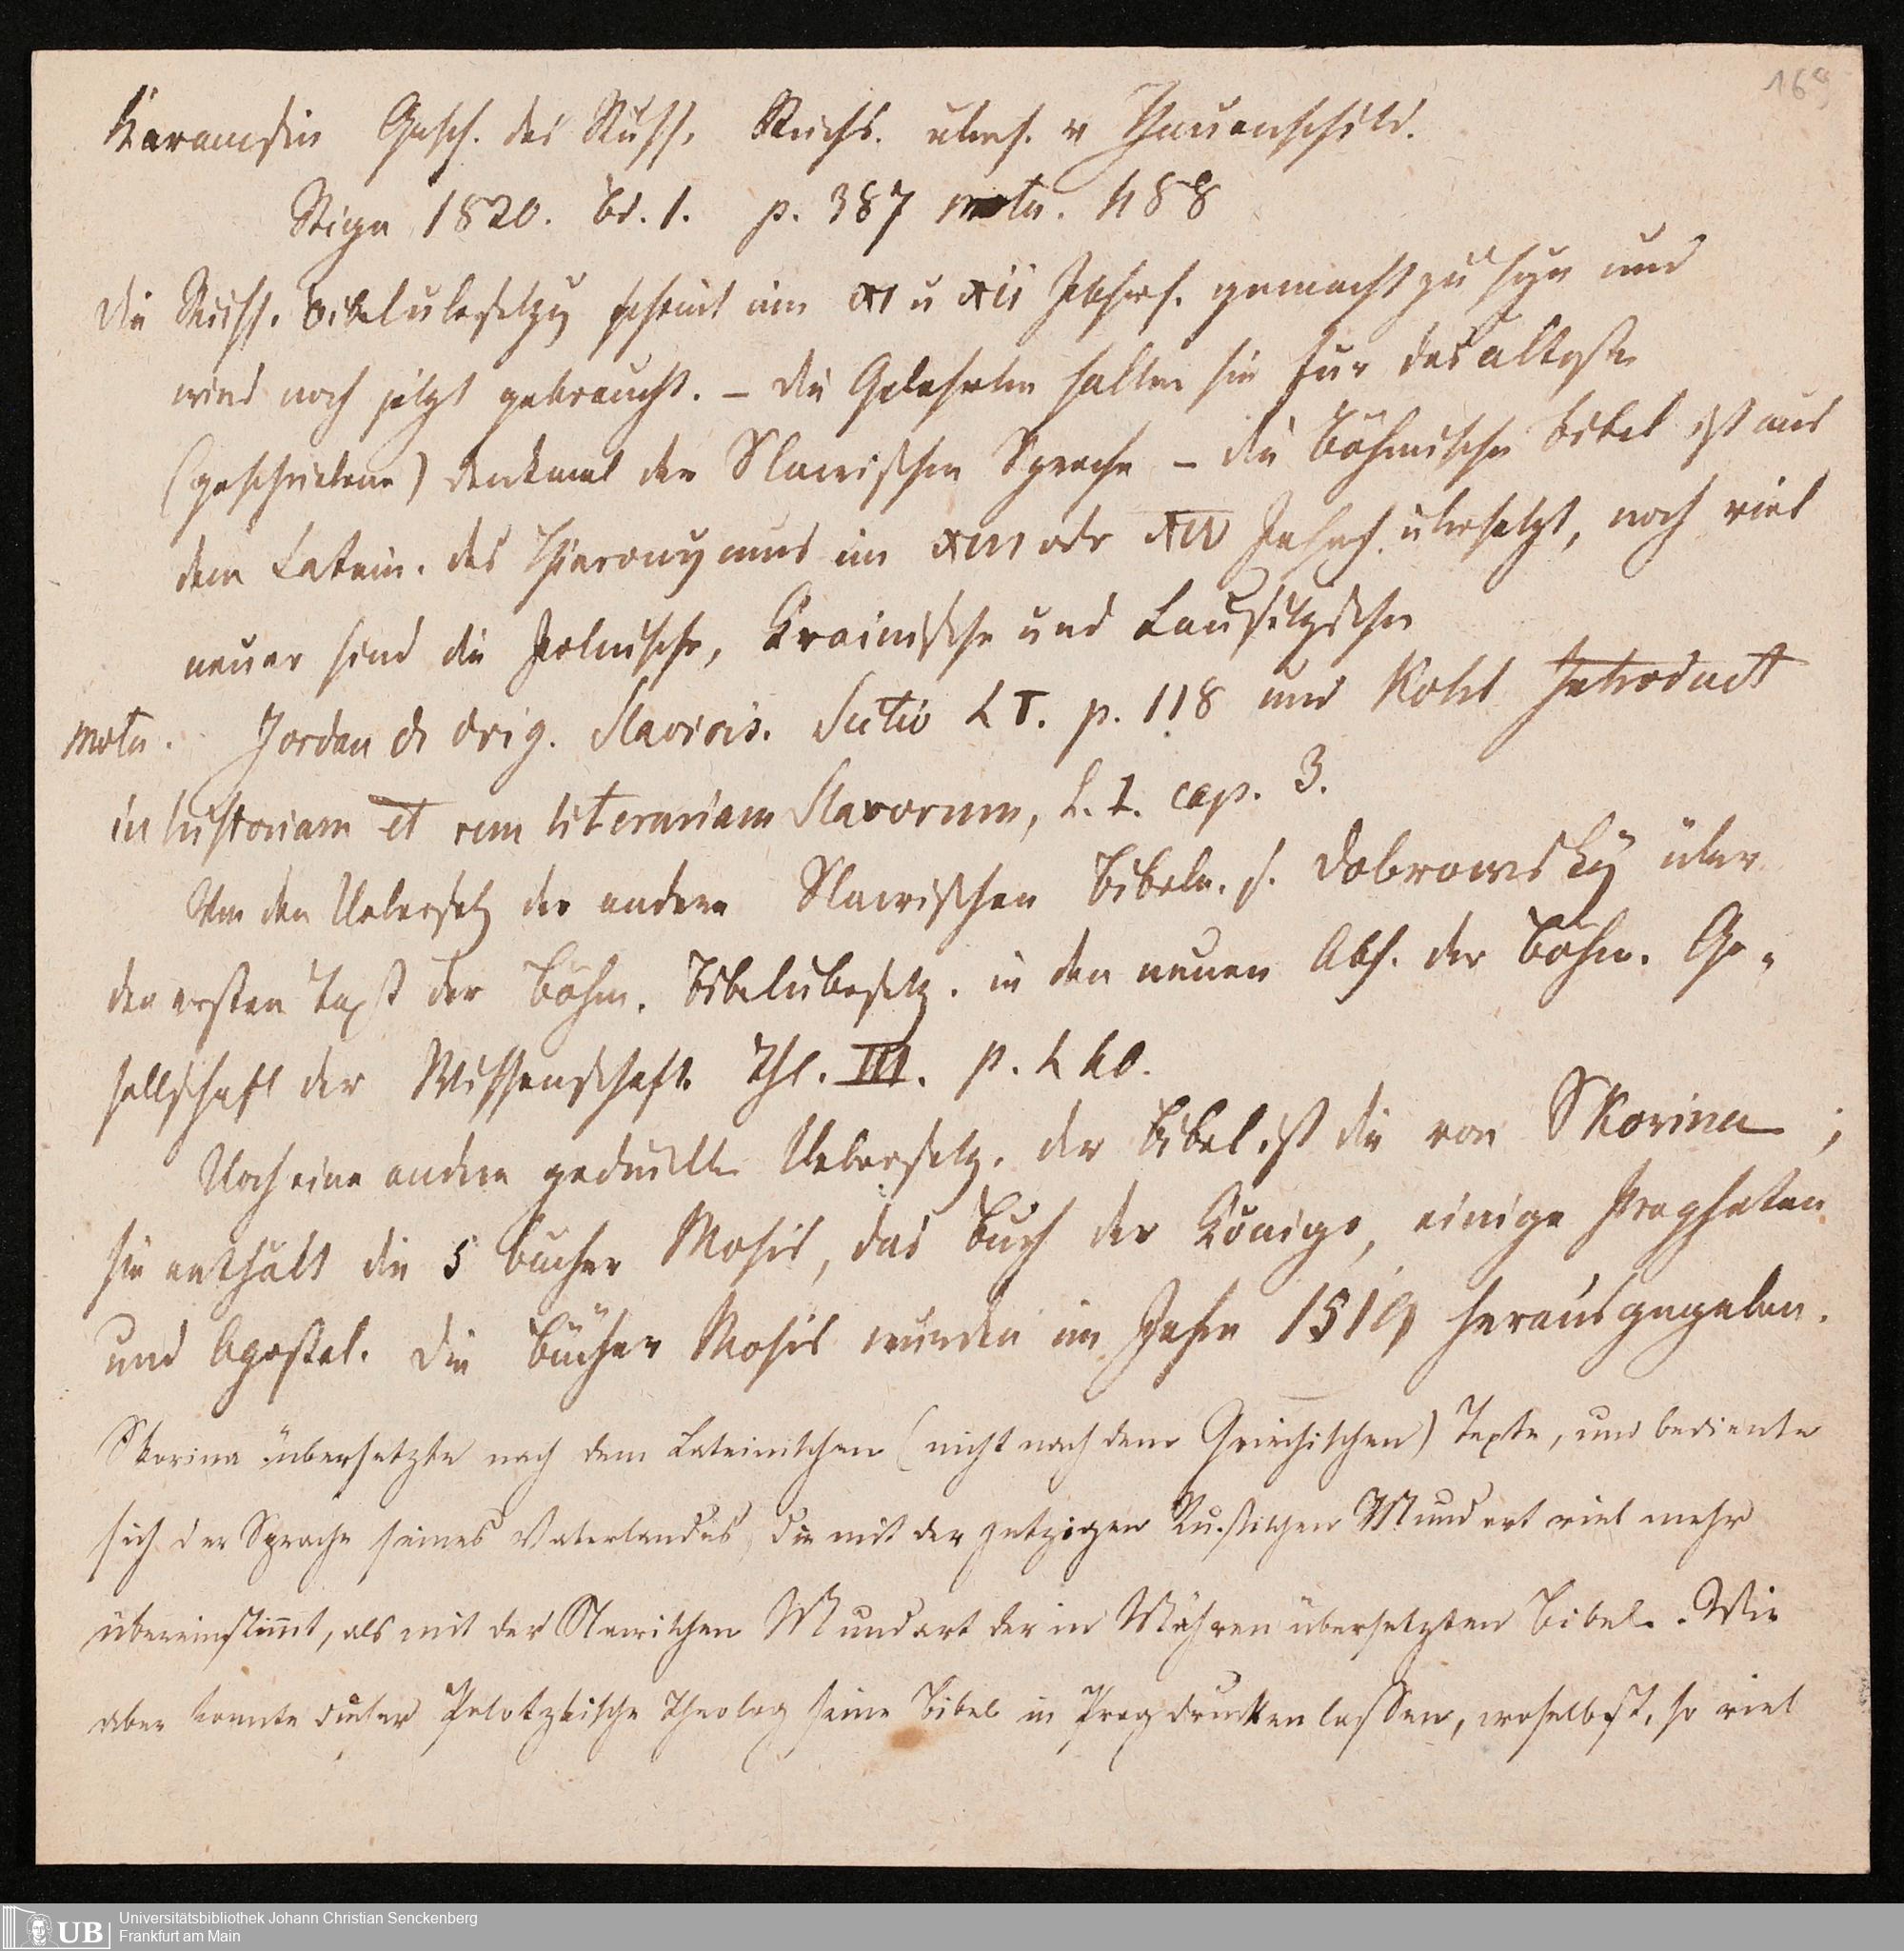 169
Karamsin Gesch. des Russ. Reichs. übers. v Hauenschild.
Riga 1820. Bd. 1. p. 387 nota. 488
Die Russ. Bibelubersetzg scheint im XI u XII Jahrh. gemacht zu seyn und
wird noch jetzt gebraucht. – Die Gelehrten halten sie fur das alteste
(geschriebene) Denkmal der Slawischen Sprache – die Böhmische Bibel ist aus
dem Latein. des Hieronymus im XIII odr XIV Jahrh. übersetzt, noch viel
neuer sind die Polnische, Krainische und Lausitzische
Nota. Jordan de Orig. Slavicis. Sectio LT. p. 118 und Kohl Introduct
in historiam et rem literariam Slavorum, L. I. cap. 3.
Von den Uebersetz der andern Slawischen Bibeln. s. Dobrowsky über
den ersten Text der Böhm. Bibelübersetz. in den neuen Abh. der Böhm. Ge-
sellschaft der Wissenschaft. Thl. III. p. 240.
Noch eine andere gedruckte Uebersetz. der Bibel ist die von Skorina;
sie enthält die 5 Bucher Mosis, das Buch der Könige, einige Propheten
und Apostel. Die Bücher Mosis wurden im Jahr 1519 herausgegeben.
Skorina übersetzte nach dem Lateinischen (nicht nach dem Griechischen) Texte, und bediente
sich der Sprache seines Vaterlandes, die mit der jetzigen Russischen Mundart viel mehr
übereinstim̄t, als mit der Slawischen Mundart der in Mähren übersetzten Bibel. Wie
aber konnte dieser Polotzkische Theolog seine Bibel in Prag drucken lassen, woselbst, so viel
UB
Universitätsbibliothek Johann Christian Senckenberg
Frankfurt am Main